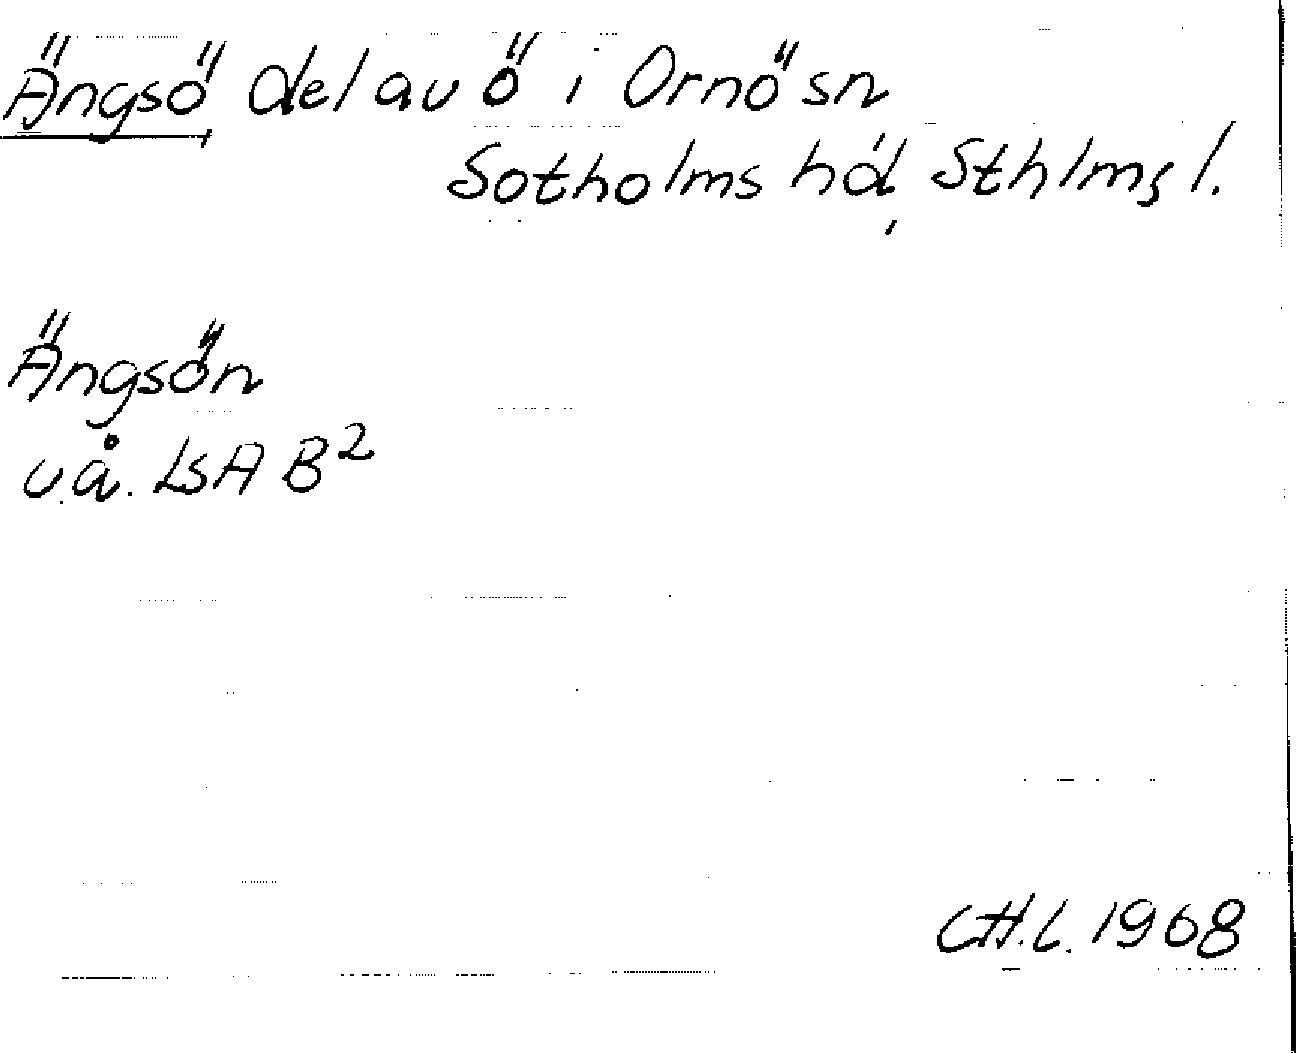 Ängsö del av ö i Ornö sn
Sotholms hd, Sthlms l.
Ängsön
u.å. LSA B2
CH.L. 1968